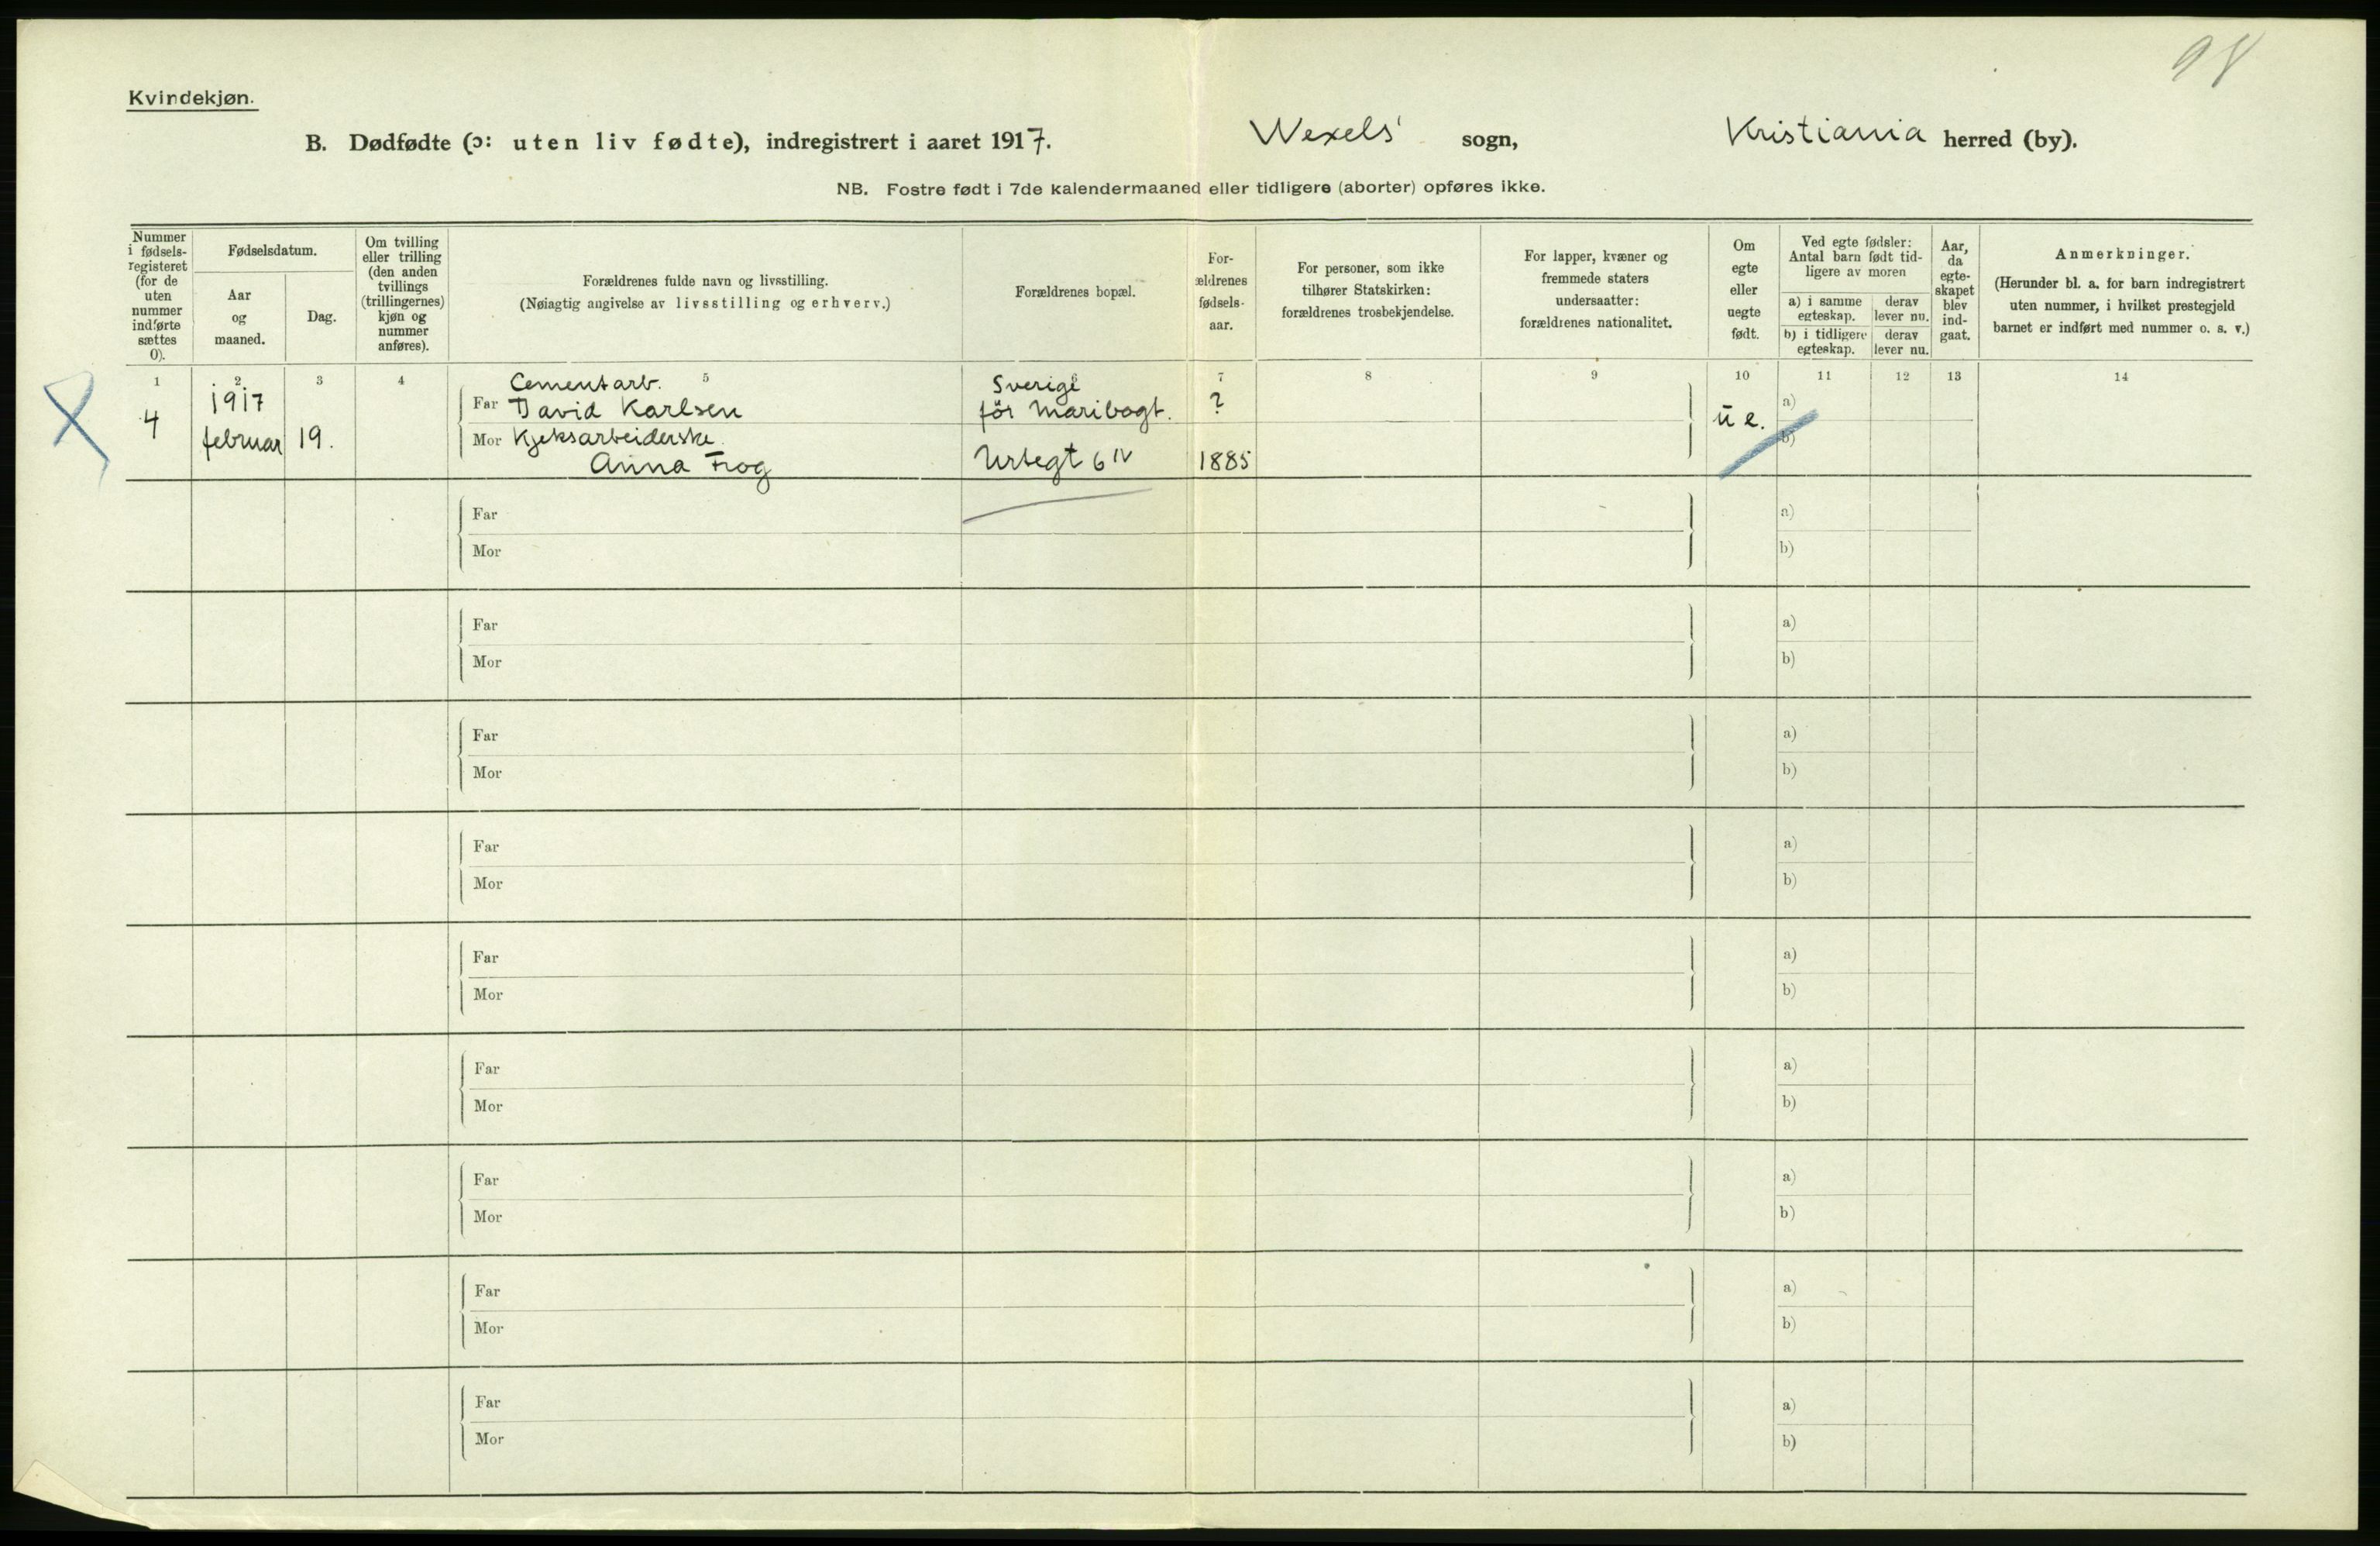 98
Kvindekjøn.
B. Dødfødte (ɔ: uten liv fødte), indregistrert i aaret 1917. Wexels' sogn, Kristiania herred (by).
NB. Fostre født i 7de kalendermaaned eller tidligere (aborter) opføres ikke.
Nummer
i fødsels-
registeret
(for de
uten
nummer
indførte
sættes
0).
Fødselsdatum.
Aar
og
maaned.
Dag.
Om tvilling
eller trilling
(den anden
tvillings
(trillingernes)
kjøn og
nummer
anføres).
Forældrenes fulde navn og livsstilling.
(Nøiagtig angivelse av livsstilling og erhverv.)
Forældrenes bopæl.
For-
ældrenes
fødsels-
aar.
For personer, som ikke
tilhører Statskirken:
forældrenes trosbekjendelse.
For lapper, kvæner og
fremmede staters
undersaatter:
forældrenes nationalitet.
Om
egte
eller
uegte
født.
Ved egte fødsler:
Antal barn født tid-
ligere av moren
a) i samme
egteskap.
derav
lever nu.
b) i tidligere
egteskap.
derav
lever nu.
Aar,
da
egte-
skapet
blev
ind-
gaat.
Anmerkninger.
(Herunder bl. a. for barn indregistrert
uten nummer, i hvilket prestegjeld
barnet er indført med nummer o. s. v.)
1 2 3 4 5 6 7 8 9 10 11 12 13 14
4
1917
februar
19.
Cementarb.
Far David Karlsen
Mor Kjeksarbeiderske.
Anna Frog
Sverige
för Maribogt.
Urtegt 6 IV
?
1885
u e.
a)
b)
Far a)
Mor b)
Far a)
Mor b)
Far a)
Mor b)
Far a)
Mor b)
Far a)
Mor b)
Far a)
Mor b)
Far a)
Mor b)
Far a)
Mor b)
Far a)
Mor b)